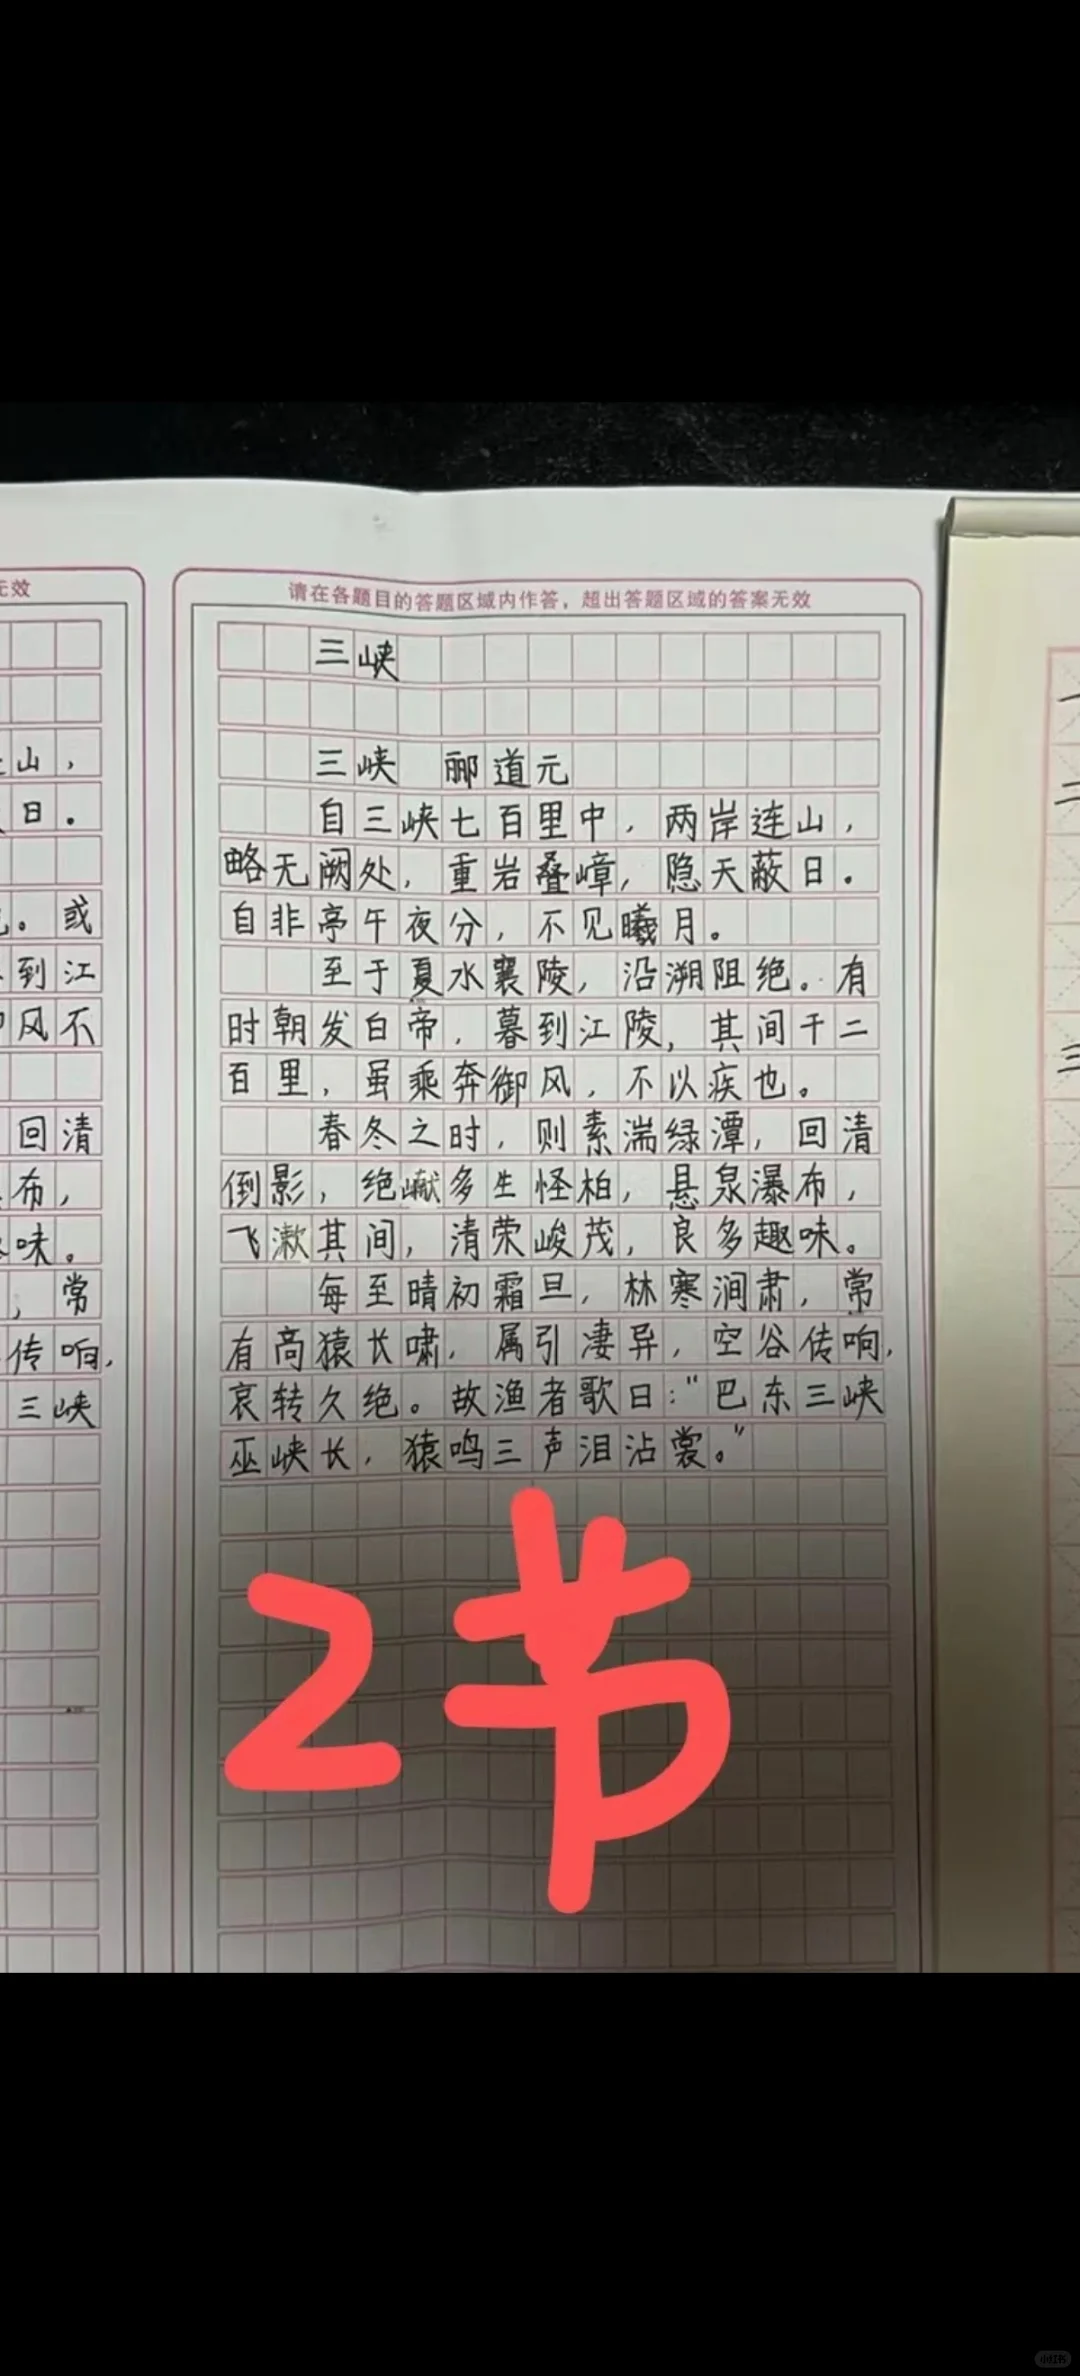 无效
山，
日。
。或
到江
风不
回清
布，
味。
，常
传响，
三峡
请在各题目的答题区域内作答，超出答题区域的答案无效
三峡
三峡 郦道元
自三峡七百里中，两岸连山，
略无阙处，重岩叠嶂，隐天蔽日。
自非亭午夜分，不见曦月。
至于夏水襄陵，沿溯阻绝。有
时朝发白帝，暮到江陵，其间千二
百里，虽乘奔御风，不以疾也。
春冬之时，则素湍绿潭，回清
倒影，绝巘多生怪柏，悬泉瀑布，
飞漱其间，清荣峻茂，良多趣味。
每至晴初霜旦，林寒涧肃，常
有高猿长啸，属引凄异，空谷传响，
哀转久绝。故渔者歌曰："巴东三峡
巫峡长，猿鸣三声泪沾裳。"
2节
一
二
三
小红书